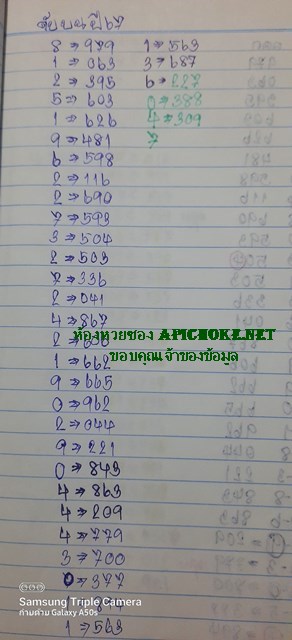 8 → 979
1 → 063
2 → 395
5 → 603
1 → 626
9 → 481
6 → 598
2 → 116
2 → 690
7 → 593
3 → 504
2 → 503
7 → 336
2 → 041
4 → 867
ห้องหวยของ APICHOKE.NET
ขอบคุณเจ้าของข้อมูล
1 → 662
9 → 665
0 → 962
2 → 044
9 → 221
0 → 843
4 → 863
4 → 209
4 → 779
3 → 700
0 → 377
1 → 563
1 → 563
3 → 687
6 → 227
0 → 388
4 → 309
7
Samsung Triple Camera
ถ่ายด้วย Galaxy A50s